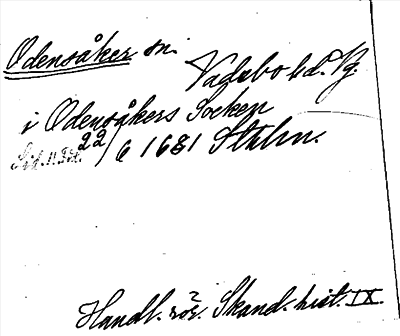 Odensåker sn. Vadsbo hd. Vg.
i Odensåkers Socken
22/6 1681 Sthlm.
Handl. rör. Skand. hist. IX.